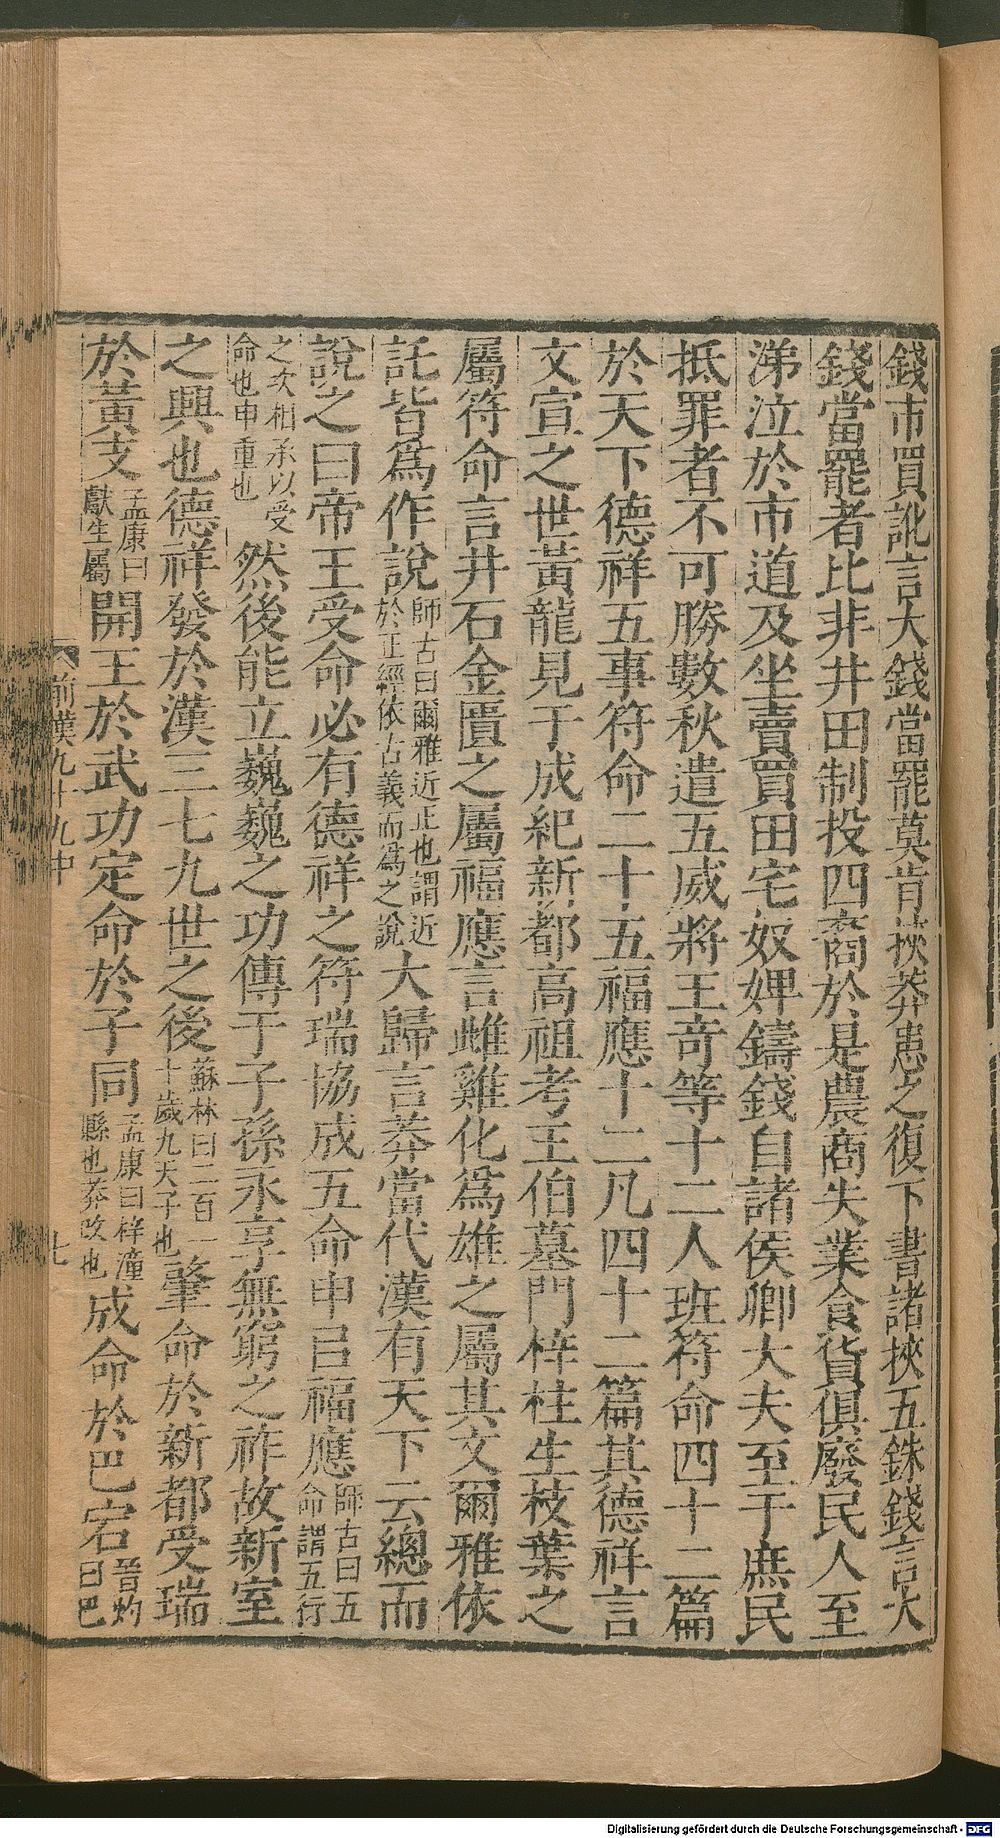 錢市買訛言大錢當罷莫肯挾莽患之復下書諸挾五銖錢言大
錢當罷者比非井田制投四裔於是農商失業食貨俱廢民人至
涕泣於市道及坐賣買田宅奴婢鑄錢自諸侯卿大夫至于庶民
抵罪者不可勝數秋遣五威將王奇等十二人班符命四十二篇
於天下德祥五事符命二十五福應十二凡四十二篇其德祥言
文宣之世黃龍見于成紀新都高祖考王伯墓門梓柱生枝葉之
屬符命言井石金匱之屬福應言雌雞化為雄之屬其文爾雅依
託皆爲作說師古曰爾雅近正也謂近於正經依古義而爲之說大歸言莽當代漢有天下云總而
說之曰帝王受命必有德祥之符瑞協成五命申㠯福應師古曰五命謂五行
之次相承以受命也申重也然後能立巍巍之功傳于子孫永享無窮之祚故新室
之興也德祥發於漢三七九世之後蘇林曰二百一十歲九天子也肇命於新都受瑞
於黃支孟康曰獻生屬開王於武功定命於子同孟康曰梓潼縣也莽改也成命於巴宕晉灼曰巴
前漢九十九中
七
Digitalisierung gefördert durch die Deutsche Forschungsgemeinschaft - DFG